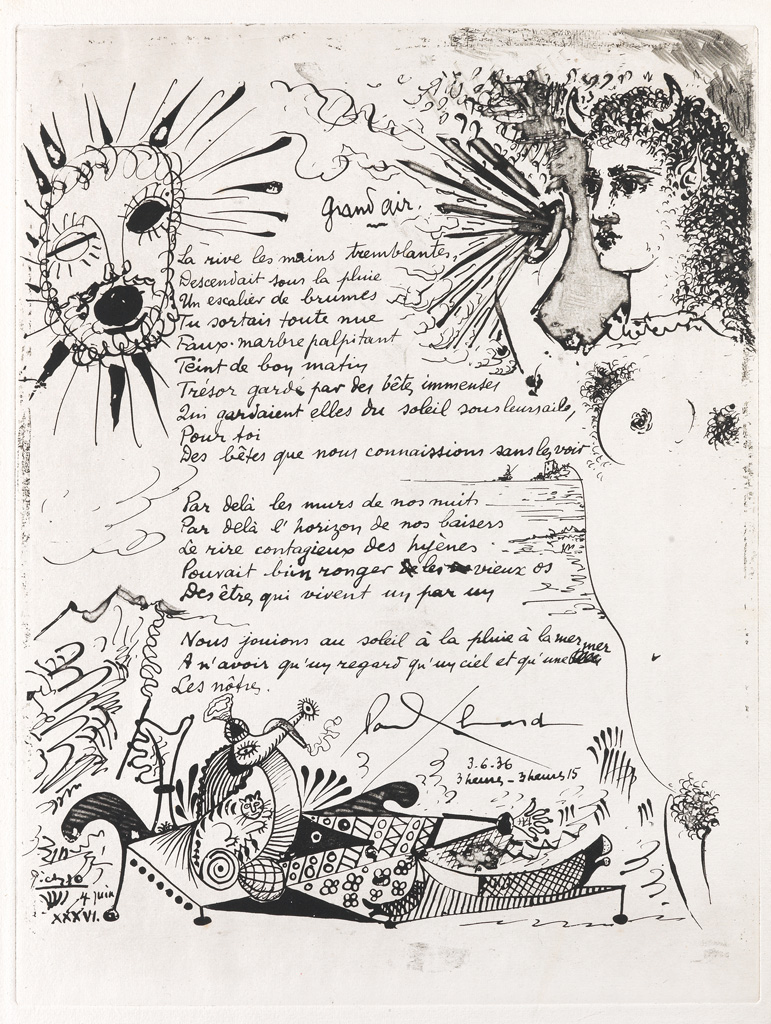 Grand air
La rive les mains tremblantes,
Descendait sous la pluie
Un escalier de brumes
Tu sortais toute nue
Faux-marbre palpitant
Teint de bon matin
Trésor gardé par des bêtes immenses
Qui gardaient elles du soleil sous leurs ailes,
Pour toi
Des bêtes que nous connaissions sans les voir
Par delà les murs de nos nuits
Par delà l'horizon de nos baisers
Le rire contagieux des hyènes
Pouvait bien ronger les vieux os
Des êtres qui vivent un par un
Nous jouions au soleil à la pluie à la mer
A n'avoir qu'un regard qu'un ciel et qu'une mer
Les nôtres.
Paul Eluard
3.6.36
3 heures - 3 heures 15
Picasso
4 juin
XXXVI.